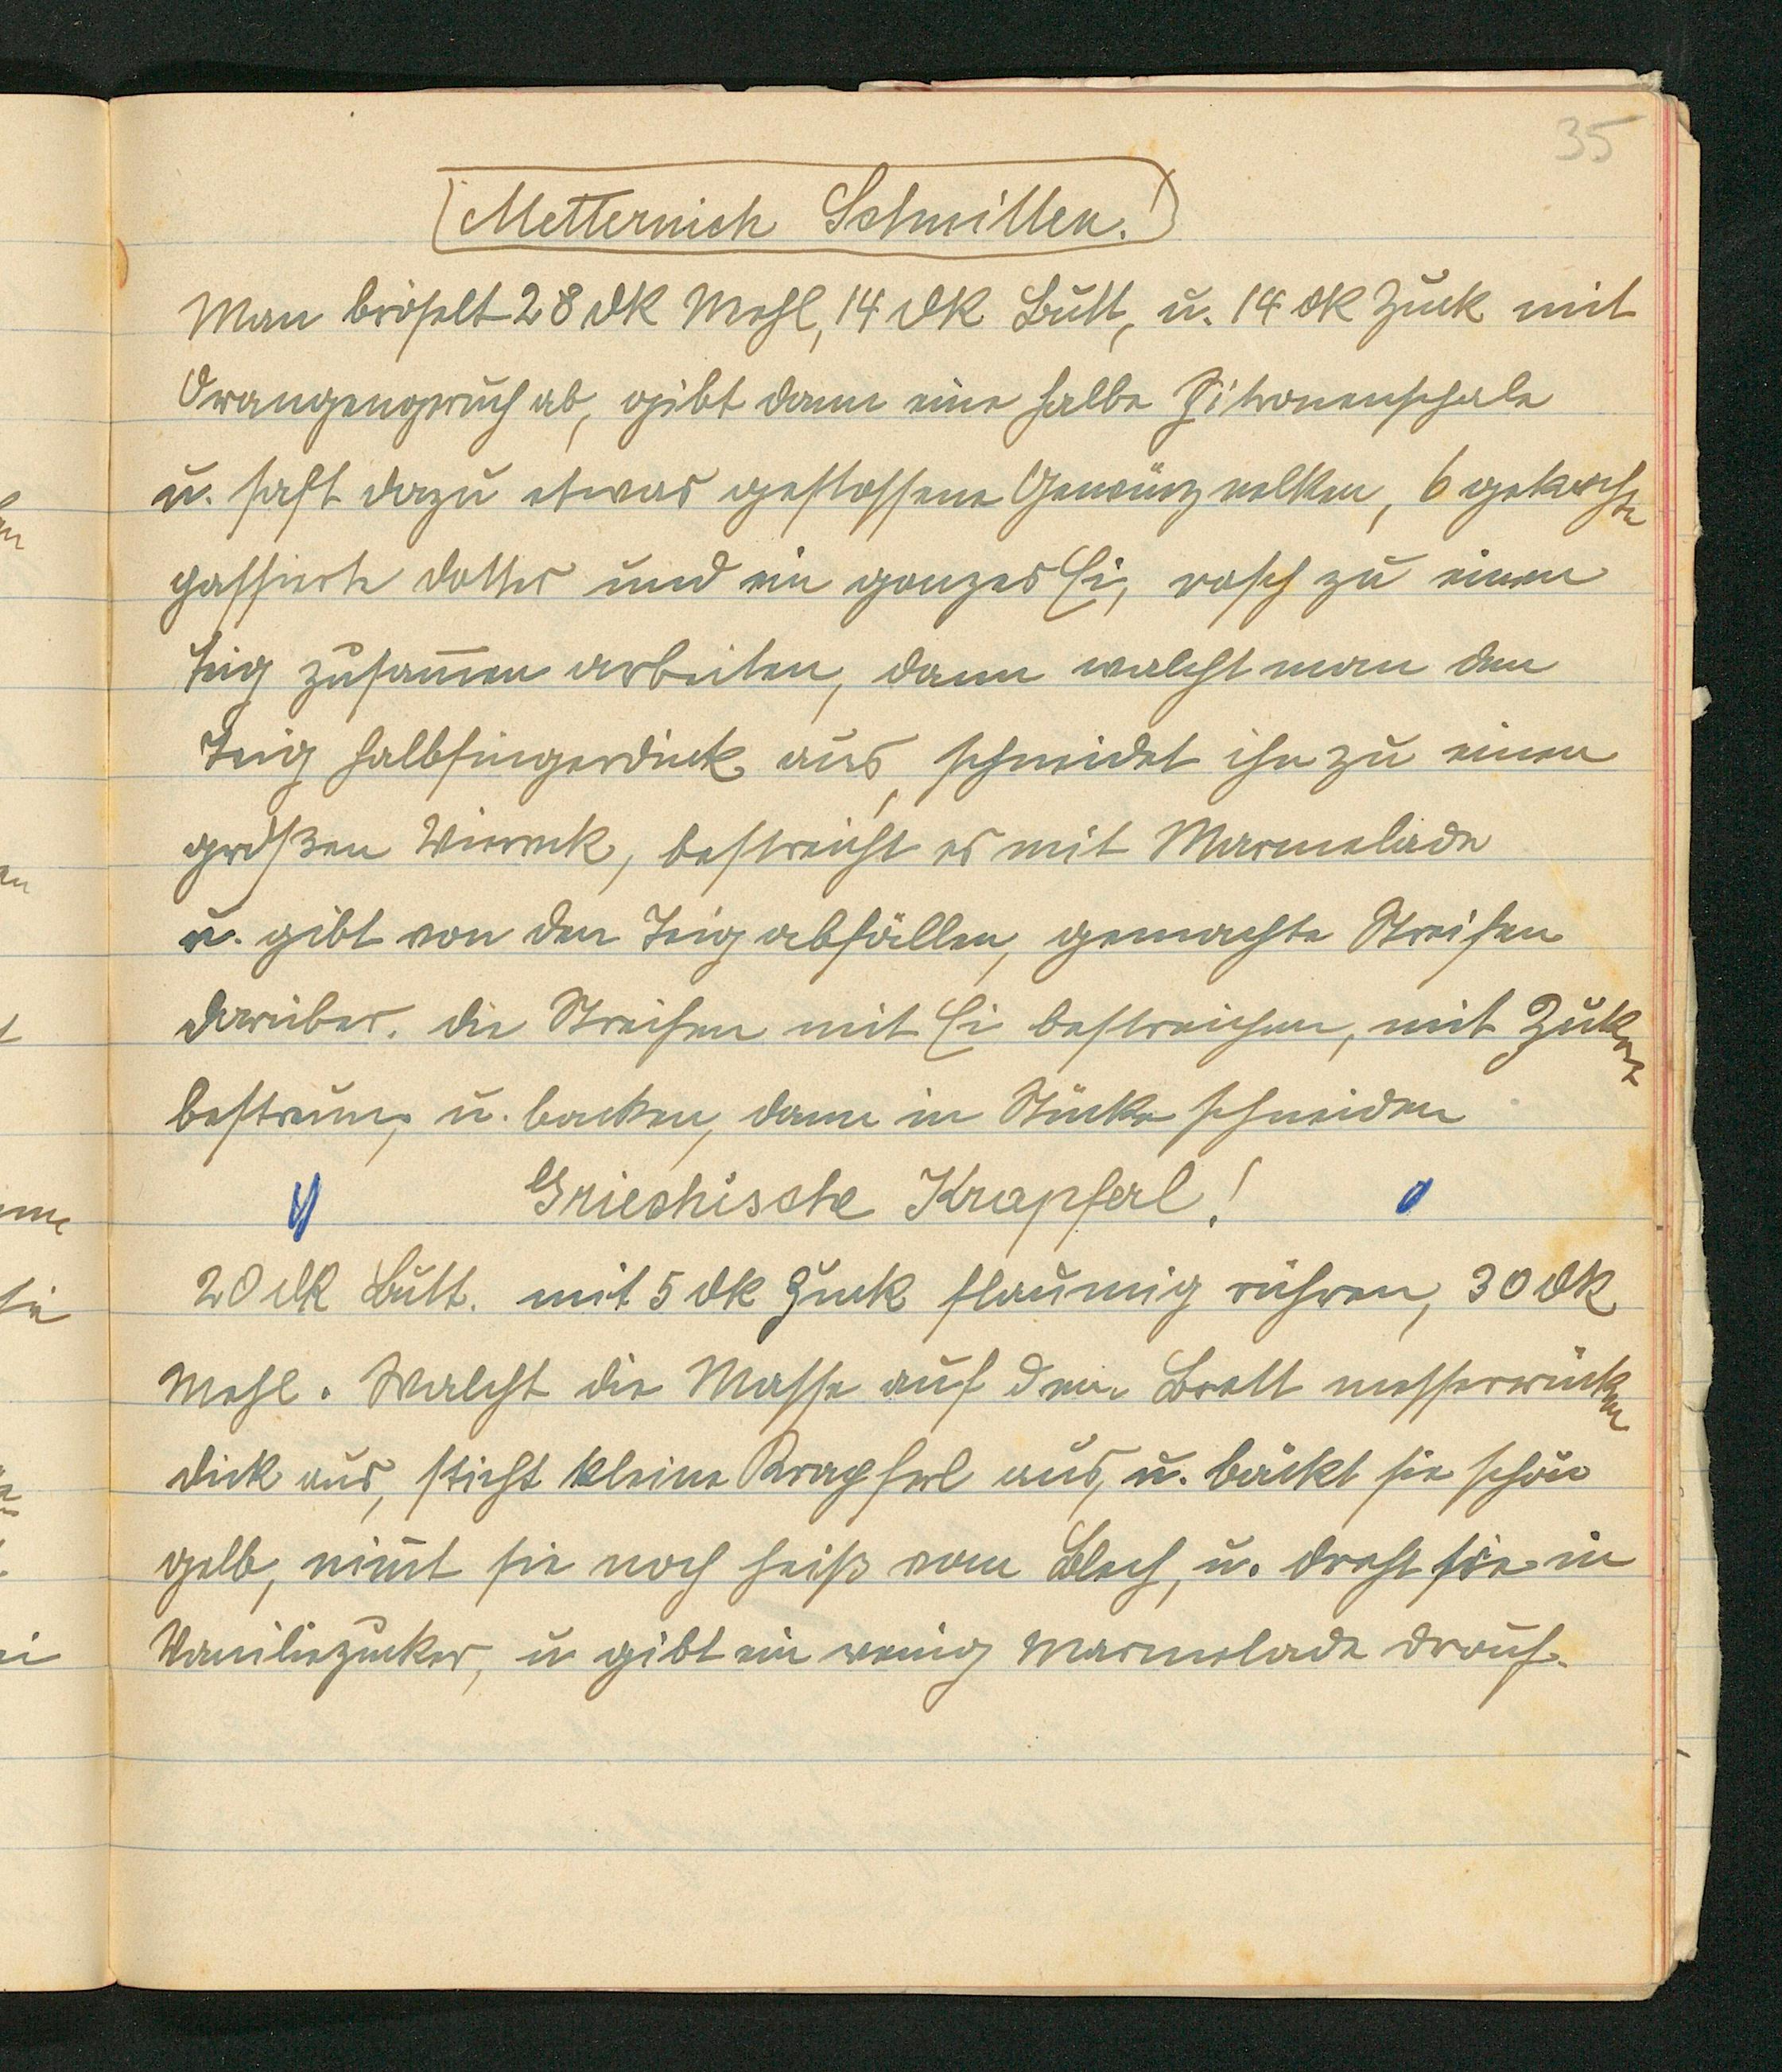 35
Metternich Schnitten!
Man bröselt 28 dk Mehl, 14 dk Butt, u. 14 dk Zuck mit
Orangengeruch ab, gibt dann eine halbe Zitronenschale
u. saft dazu etwas gestossene Gewürznelken, 6 gekochte
passierte Dotter und ein ganzes Ei, rasch zu einen
Teig zusam̅en arbeiten, dann walcht man den
Teig halbfingerdick aus, schneidet ihn zu einen
großen Viereck, bestreicht es mit Marmelade
u. gibt von den Teigabfällen, gemachte Streifen
darüber. die Streifen mit Ei bestreichen, mit Zuker
bestreun, u. backen, dann in Stücke schneiden
Griechische Krapferl!
20 dk Butt. mit 5 dk Zuck flaumig rühren, 30 dk
Mehl. Walcht die Masse auf dem Brett messerrücken
dick aus, sticht kleine Krapferl aus, u. bäckt sie schön
gelb, nim̅t sie noch heiß vom Blech, u. dreht sie in
Vaniliezucker, u gibt ein wenig Marmelade drauf.